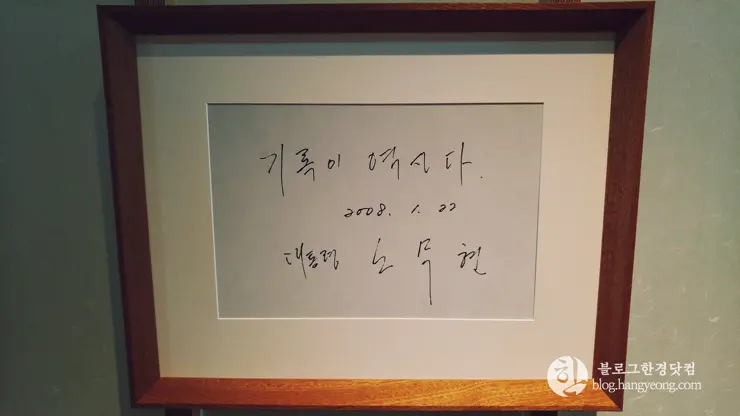 기록이 역사다.
2008. 1. 22
대통령 노무현
한
블로그한경닷컴
blog.hangyeong.com